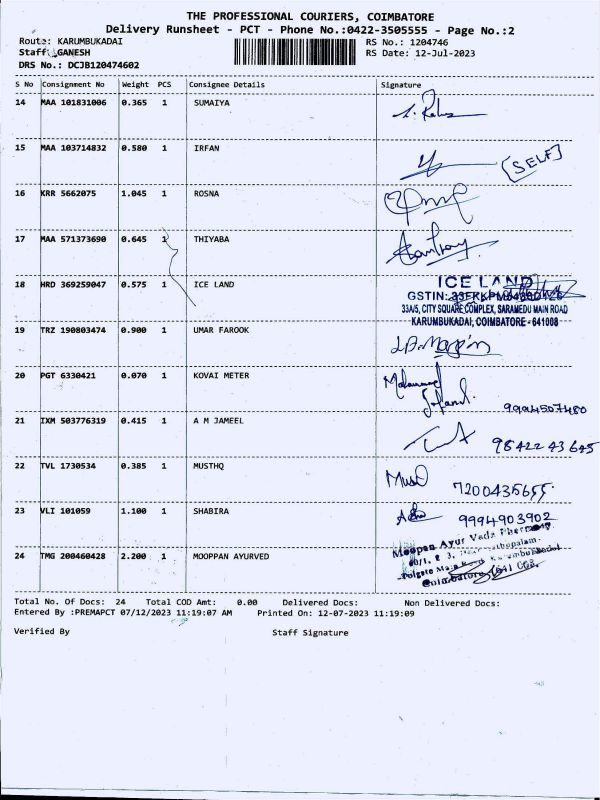 THE PROFESSIONAL COURIERS, COIMBATORE
Delivery Runsheet - PCT - Phone No.:0422-3505555 - Page No.:2
Route: KARUMBUKADAI RS No.: 1204746
Staff: GANESH RS Date: 12-Jul-2023
DRS No.: DCJB120474602
S No Consignment No Weight PCS Consignee Details Signature
14 MAA 101831006 0.365 1 SUMAIYA
15 MAA 103714832 0.580 1 IRFAN [SELF]
16 KRR 5662075 1.045 1 ROSNA
17 MAA 571373690 0.645 1 THIYABA
18 HRD 369259047 0.575 1 ICE LAND ICE LAND
GSTIN:
33A/5, CITY SQUARE COMPLEX, SARAMEDU MAIN ROAD
KARUMBUKADAI, COIMBATORE - 641008
19 TRZ 190803474 0.900 1 UMAR FAROOK
20 PGT 6330421 0.070 1 KOVAI METER Mohammed
9994507480
21 IXM 503776319 0.415 1 A M JAMEEL 98422 43645
22 TVL 1730534 0.385 1 MUSTHQ 7200435655
23 VLI 101059 1.100 1 SHABIRA 9994903902
Moopan Ayur Veda
24 TMG 200460428 2.200 1 MOOPPAN AYURVED
Coimbatore
Total No. Of Docs: 24 Total COD Amt: 0.00 Delivered Docs: Non Delivered Docs:
Entered By :PREMAPCT 07/12/2023 11:19:07 AM Printed On: 12-07-2023 11:19:09
Verified By Staff Signature